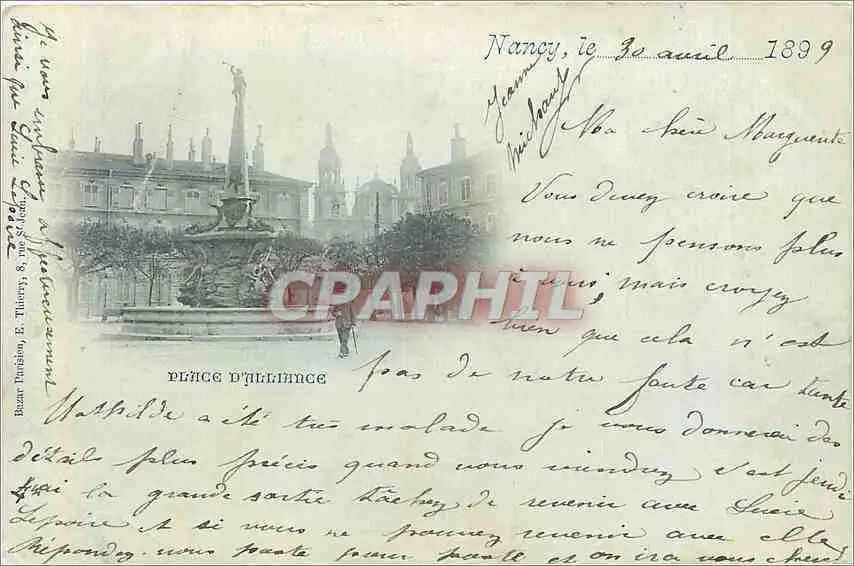 Nancy, le 30 avril 1899
Ma chère Marguerite
Vous devez croire que
nous ne pensons plus
à vous mais croyez
bien que cela n'est
pas de notre faute car tante
Mathilde a été très malade je vous donnerai des
détails plus précis quand vous viendrez c'est jeudi
la grande sortie tâchez de revenir avec Lucie
Lepoire et si vous ne pouvez revenir avec elle
Répondez-nous poste pour poste et on ira vous chercher
Je vous embrasse affectueusement
ainsi que Lucie Lepoire
Jeanne
PLACE D'ALLIANCE
Bazar Parisien, E. Thierry, 8, rue St-Jean
CPAPHIL